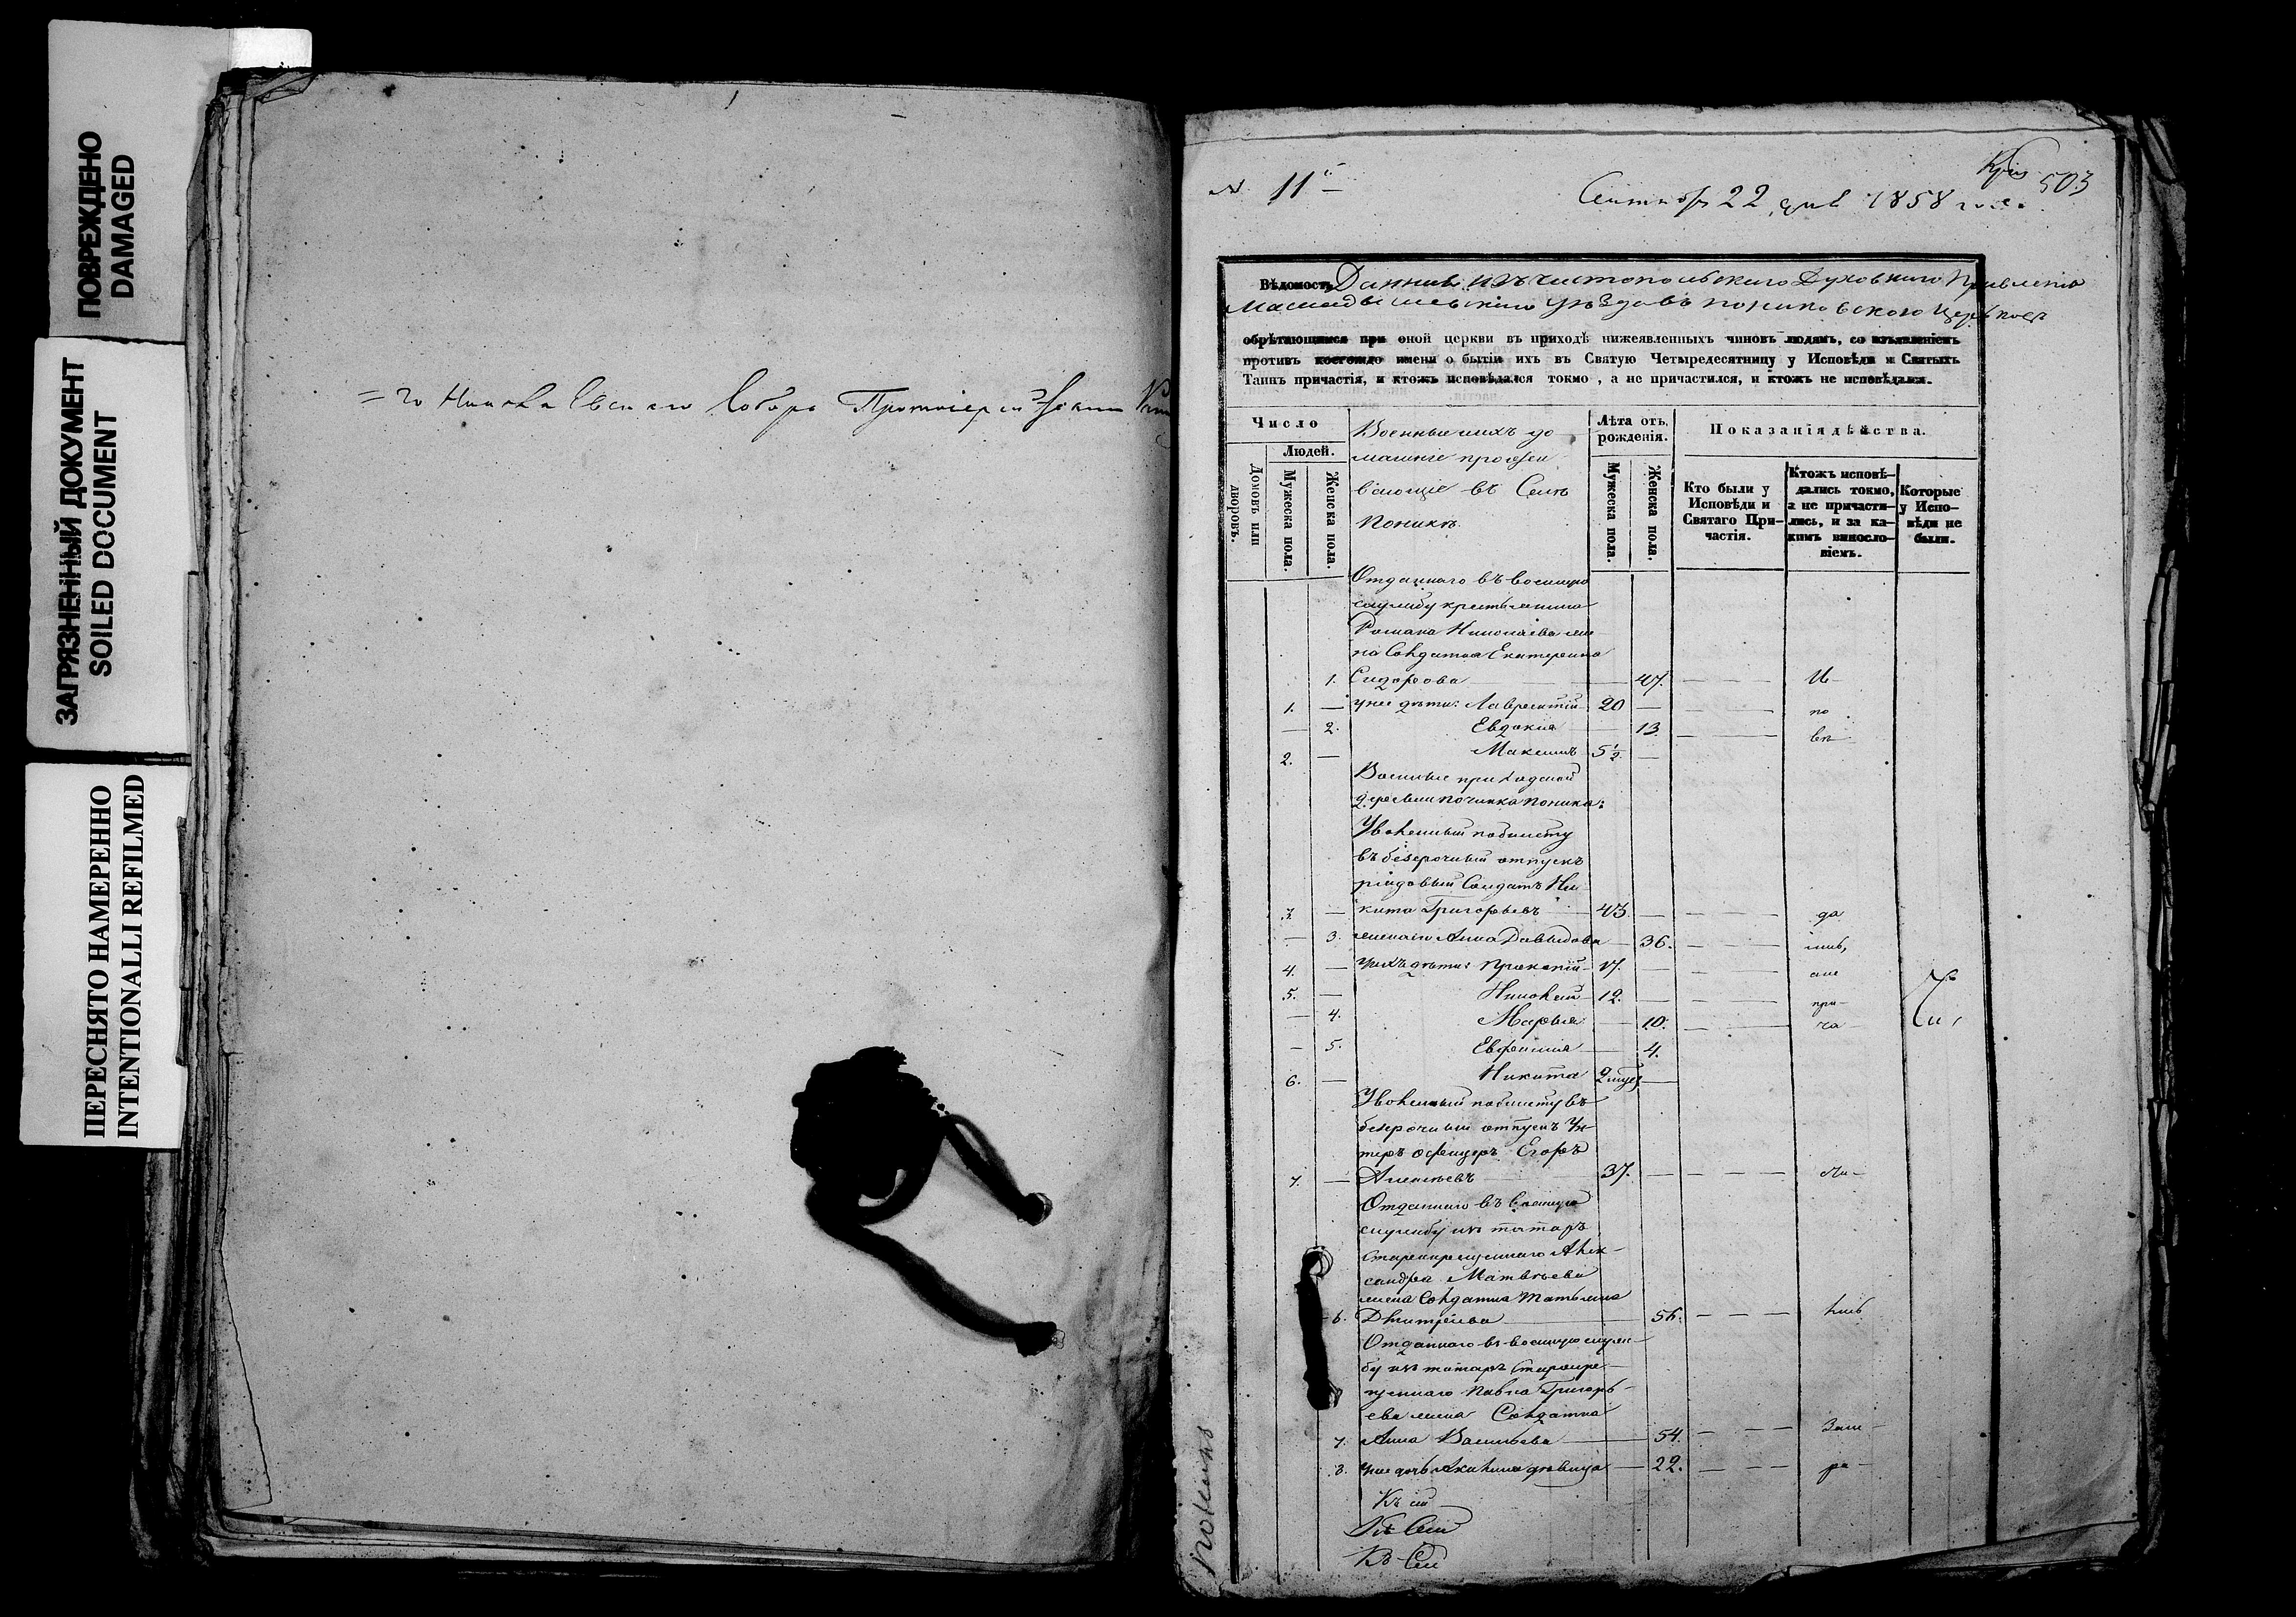 ПОВРЕЖДЕНО
DAMAGED
ЗАГРЯЗНЕННЫЙ ДОКУМЕНТ
SOILED DOCUMENT
ПЕРЕСНЯТО НАМЕРЕННО
INTENTIONALLI REFILMED
= го Собора Протоіерей
№ 11й
503
22 дня 1858 года
Вѣдомость Данная изъ Чистопольскаго Духовнаго Правленія
Мамадышскаго уѣзда въ
обрѣтающимся при оной церкви въ приходѣ нижеявленныхъ чиновъ людямъ, со изъявленіемъ
противъ коегождо имени о бытіи ихъ въ Святую Четыредесятницу у Исповѣди и Святыхъ
Таинъ причастія, и ктожъ исповѣдался токмо, а не причастился, и ктожъ не исповѣдался.
Число
Людей.
Домовъ или дворовъ.
Мужеска пола.
Женска пола.
Военные ихъ до
машніе прожи
вающіе въ Селѣ
Поникѣ.
Лѣта отъ
рожденія.
Мужеска пола.
Женска пола.
Показанія дѣйства.
Кто были у
Исповѣди и
Святаго При-
частія.
Ктожъ исповѣ-
дались токмо,
а не причасти-
лись, и за ка-
кимъ винослo-
віемъ.
Которые
у Испо-
вѣди не
были.
Отданнаго въ военную
службу крестьянина
Романа Николаева же
на Солдатка Екатерина
1. Сидорова 47. Ис-
1. у нее дѣти: Лаврентій 20 по
2. Евдокія 13 вѣ-
2. Максимъ 5 1/2
Военные приходской
деревни починка Поника:
Уволенный по билету
въ безсрочный отпускъ
рядовый Солдатъ Ни-
3. кита Григорьевъ 43. да
3. жена его Анна Давыдова 36.
4. у нихъ дѣти: Прокопій 17.
5. Николай 12. при-
4. Марья 10. ча-
5. Евфимія 4.
6. Никита 2 мѣс.
Уволенный по билету въ
безсрочный отпускъ Ун-
теръ офицеръ Егоръ
7. Алексѣевъ 37.
Отданнаго въ Военную
службу изъ татаръ
старокрещеннаго Алек-
сандра Матвѣева
жена Солдатка Татьяна
6. Дмитріева 56.
Отданнаго въ военную служ-
бу изъ татаръ Старокре-
щеннаго Павла Григорь-
ева жена Солдатка
7. Анна Васильева 54.
8. у нее дочь Акилина дѣвица 22.
Къ сей
Къ Сей
Къ Сей